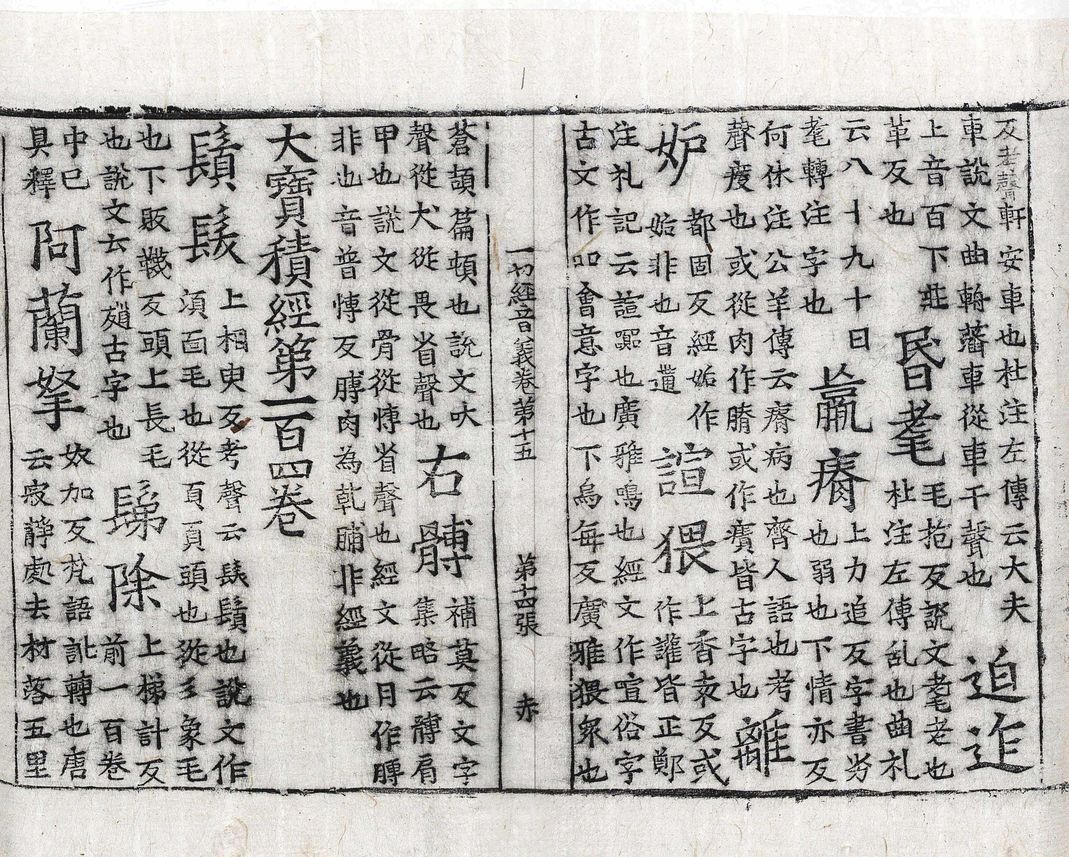 反考聲軒安車也杜注左傳云大夫
車說文曲輈藩車從車干聲也
迫迮
上音百下莊
革反也
昬耄
毛抱反說文耄老也
杜注左傳乱也曲礼
云八十九十日
耄轉注字也
羸瘠
上力追反字書劣
也弱也下情亦反
何休注公羊傳云瘠病也齊人語也考
聲瘦也或從肉作膌或作皆古字也
離
妒
都固反經妬作
姤非也音遘
諠猥
上香袁反或
作讙皆正鄭
注礼記云諠嚻也廣雅鳴也經文作喧俗字
古文作吅會意字也下烏每反廣雅猥衆也
一切經音義卷第十五 第十四張 赤
蒼頡篇頓也說文吠
聲從犬從畏省聲也
右髆
補莫反文字
集略云髆肩
甲也說文從骨從愽省聲也經文從月作膊
非也音普愽反膊肉為乾脯非經義也
大寶積經第一百四卷
鬚髮
上相臾反考聲云髭鬚也說文作
湏面毛也從頁頁頭也從彡象毛
也下販韈反頭上長毛
也說文云作古字也
鬀除
上梯計反
前一百卷
中已
具釋
阿蘭拏
奴加反梵語訛轉也唐
云寂靜處去材落五里